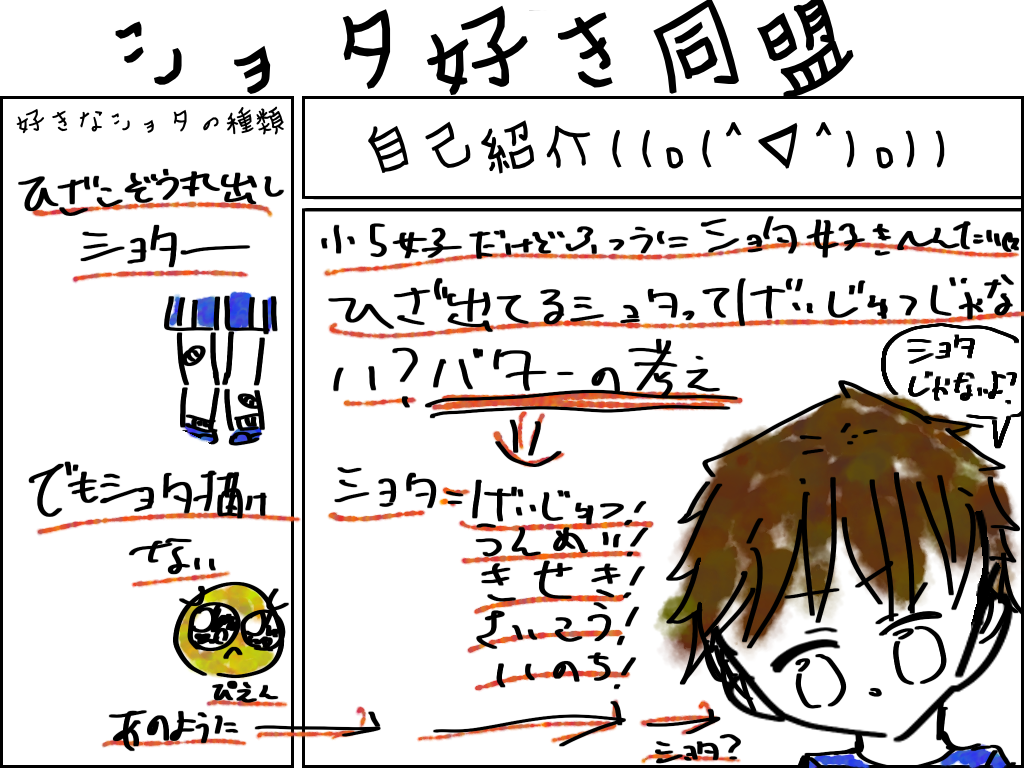 ショタ好き同盟
好きなショタの種類
ひざこぞう出し
ショター
でもショタ描け
ぜない
ぴえん
あのように
自己紹介((o(^▽^)o))
小5女子だけどふつうにショタ好き
ひざ出てるショタってげいじゅつじゃな
い?バターの考え
ショタ=げいじゅつ!
うんめい!
きせき!
さいこう!
いのち!
ショタ
じゃないよ?
ショタ?